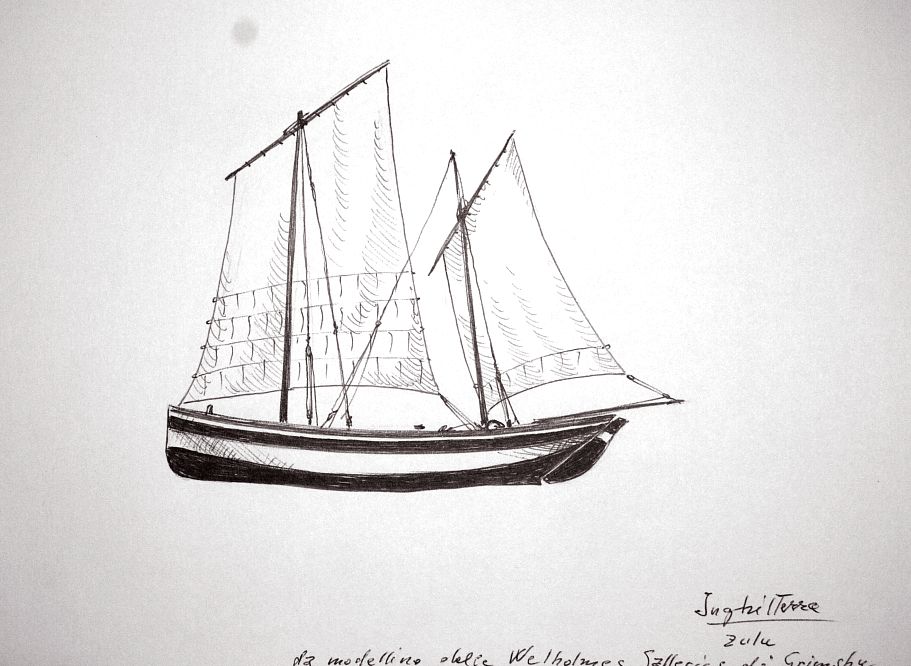 Inghilterra
zulu
da modellino delle Welholmes Galleries di Grimsby